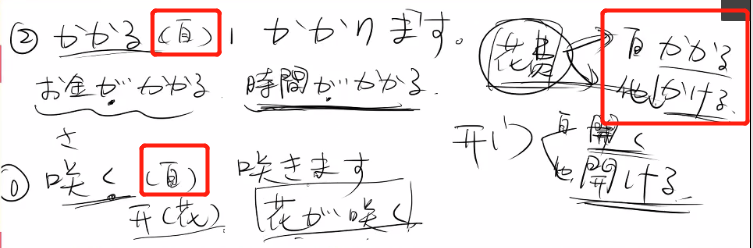 ② かかる(自)1 かかります。
お金がかかる 時間がかかる.
花费 自 かかる
他 かける
さ
① 咲く(自) 咲きます
开(花) 花が咲く
开门 自 開く
他 開ける